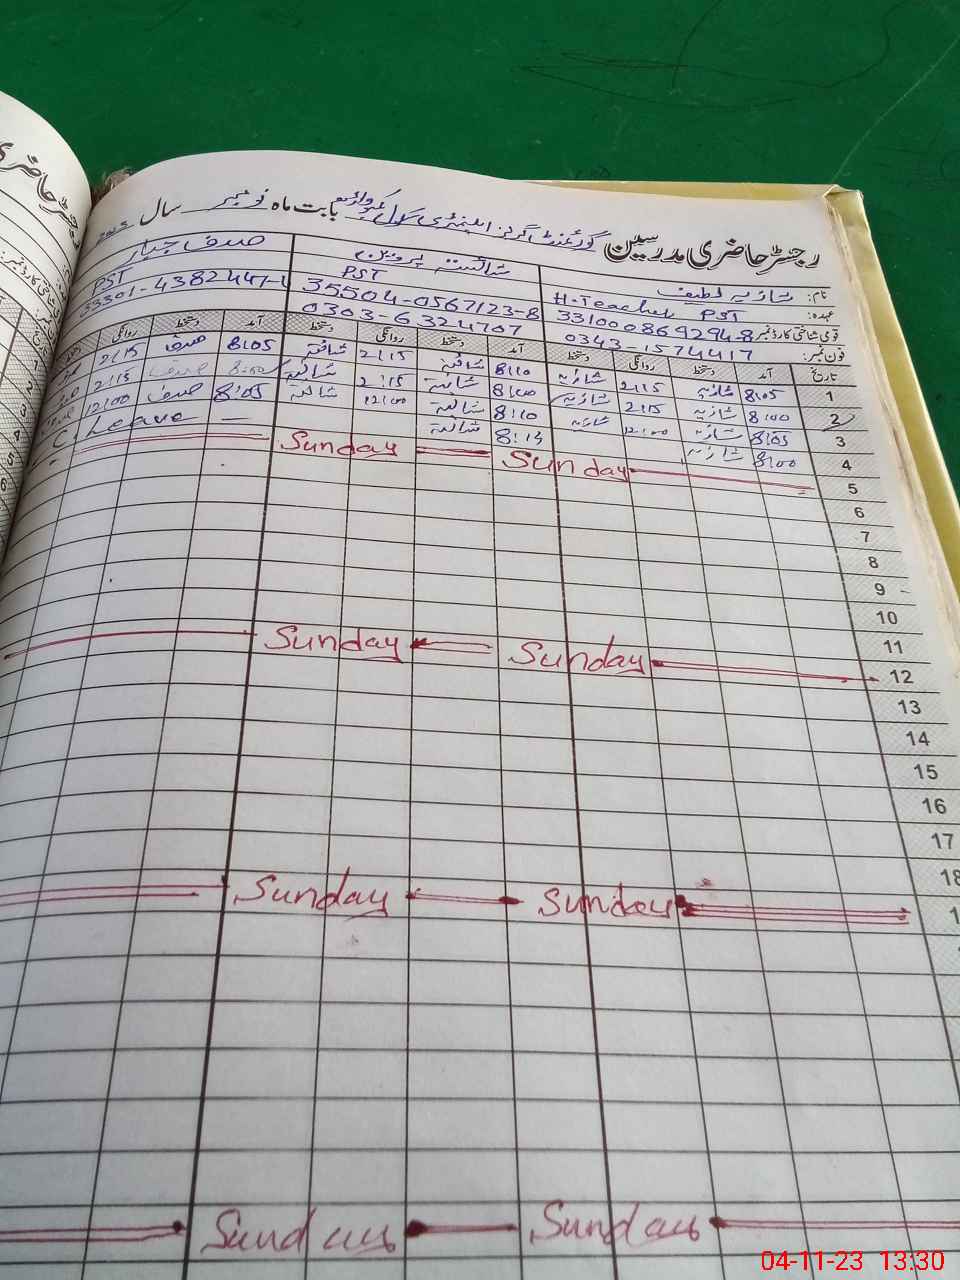 رجسٹر حاضری مدرسین گورنمنٹ گرلز ایلیمنٹری سکول بابت ماہ نومبر سال
نام: شازیہ لطیف شائستہ پروین صدف جبار
عہدہ: H.Teacher PST PST PST
قومی شناختی کارڈ نمبر 35504-0567123-8
فون نمبر: 0343-1574417 0303-6324707
تاریخ آمد دستخط روانگی دستخط آمد دستخط روانگی دستخط آمد دستخط روانگی
1 8:05 شازیہ 2:15 شازیہ 8:10 شائستہ 2:15 شائستہ 8:05 صدف 2:15
2 8:00 شازیہ 2:15 شازیہ 8:00 شائستہ 2:15 شائستہ 8:00 صدف 2:15
3 8:05 شازیہ 12:00 شازیہ 8:10 شائستہ 12:00 شائستہ 8:05 صدف 12:00
4 8:00 شازیہ 8:15 شائستہ C. Leave
5 Sunday Sunday
6
7
8
9
10
11
12 Sunday Sunday
13
14
15
16
17
18
Sunday Sunday
Sunday Sunday
04-11-23 13:30